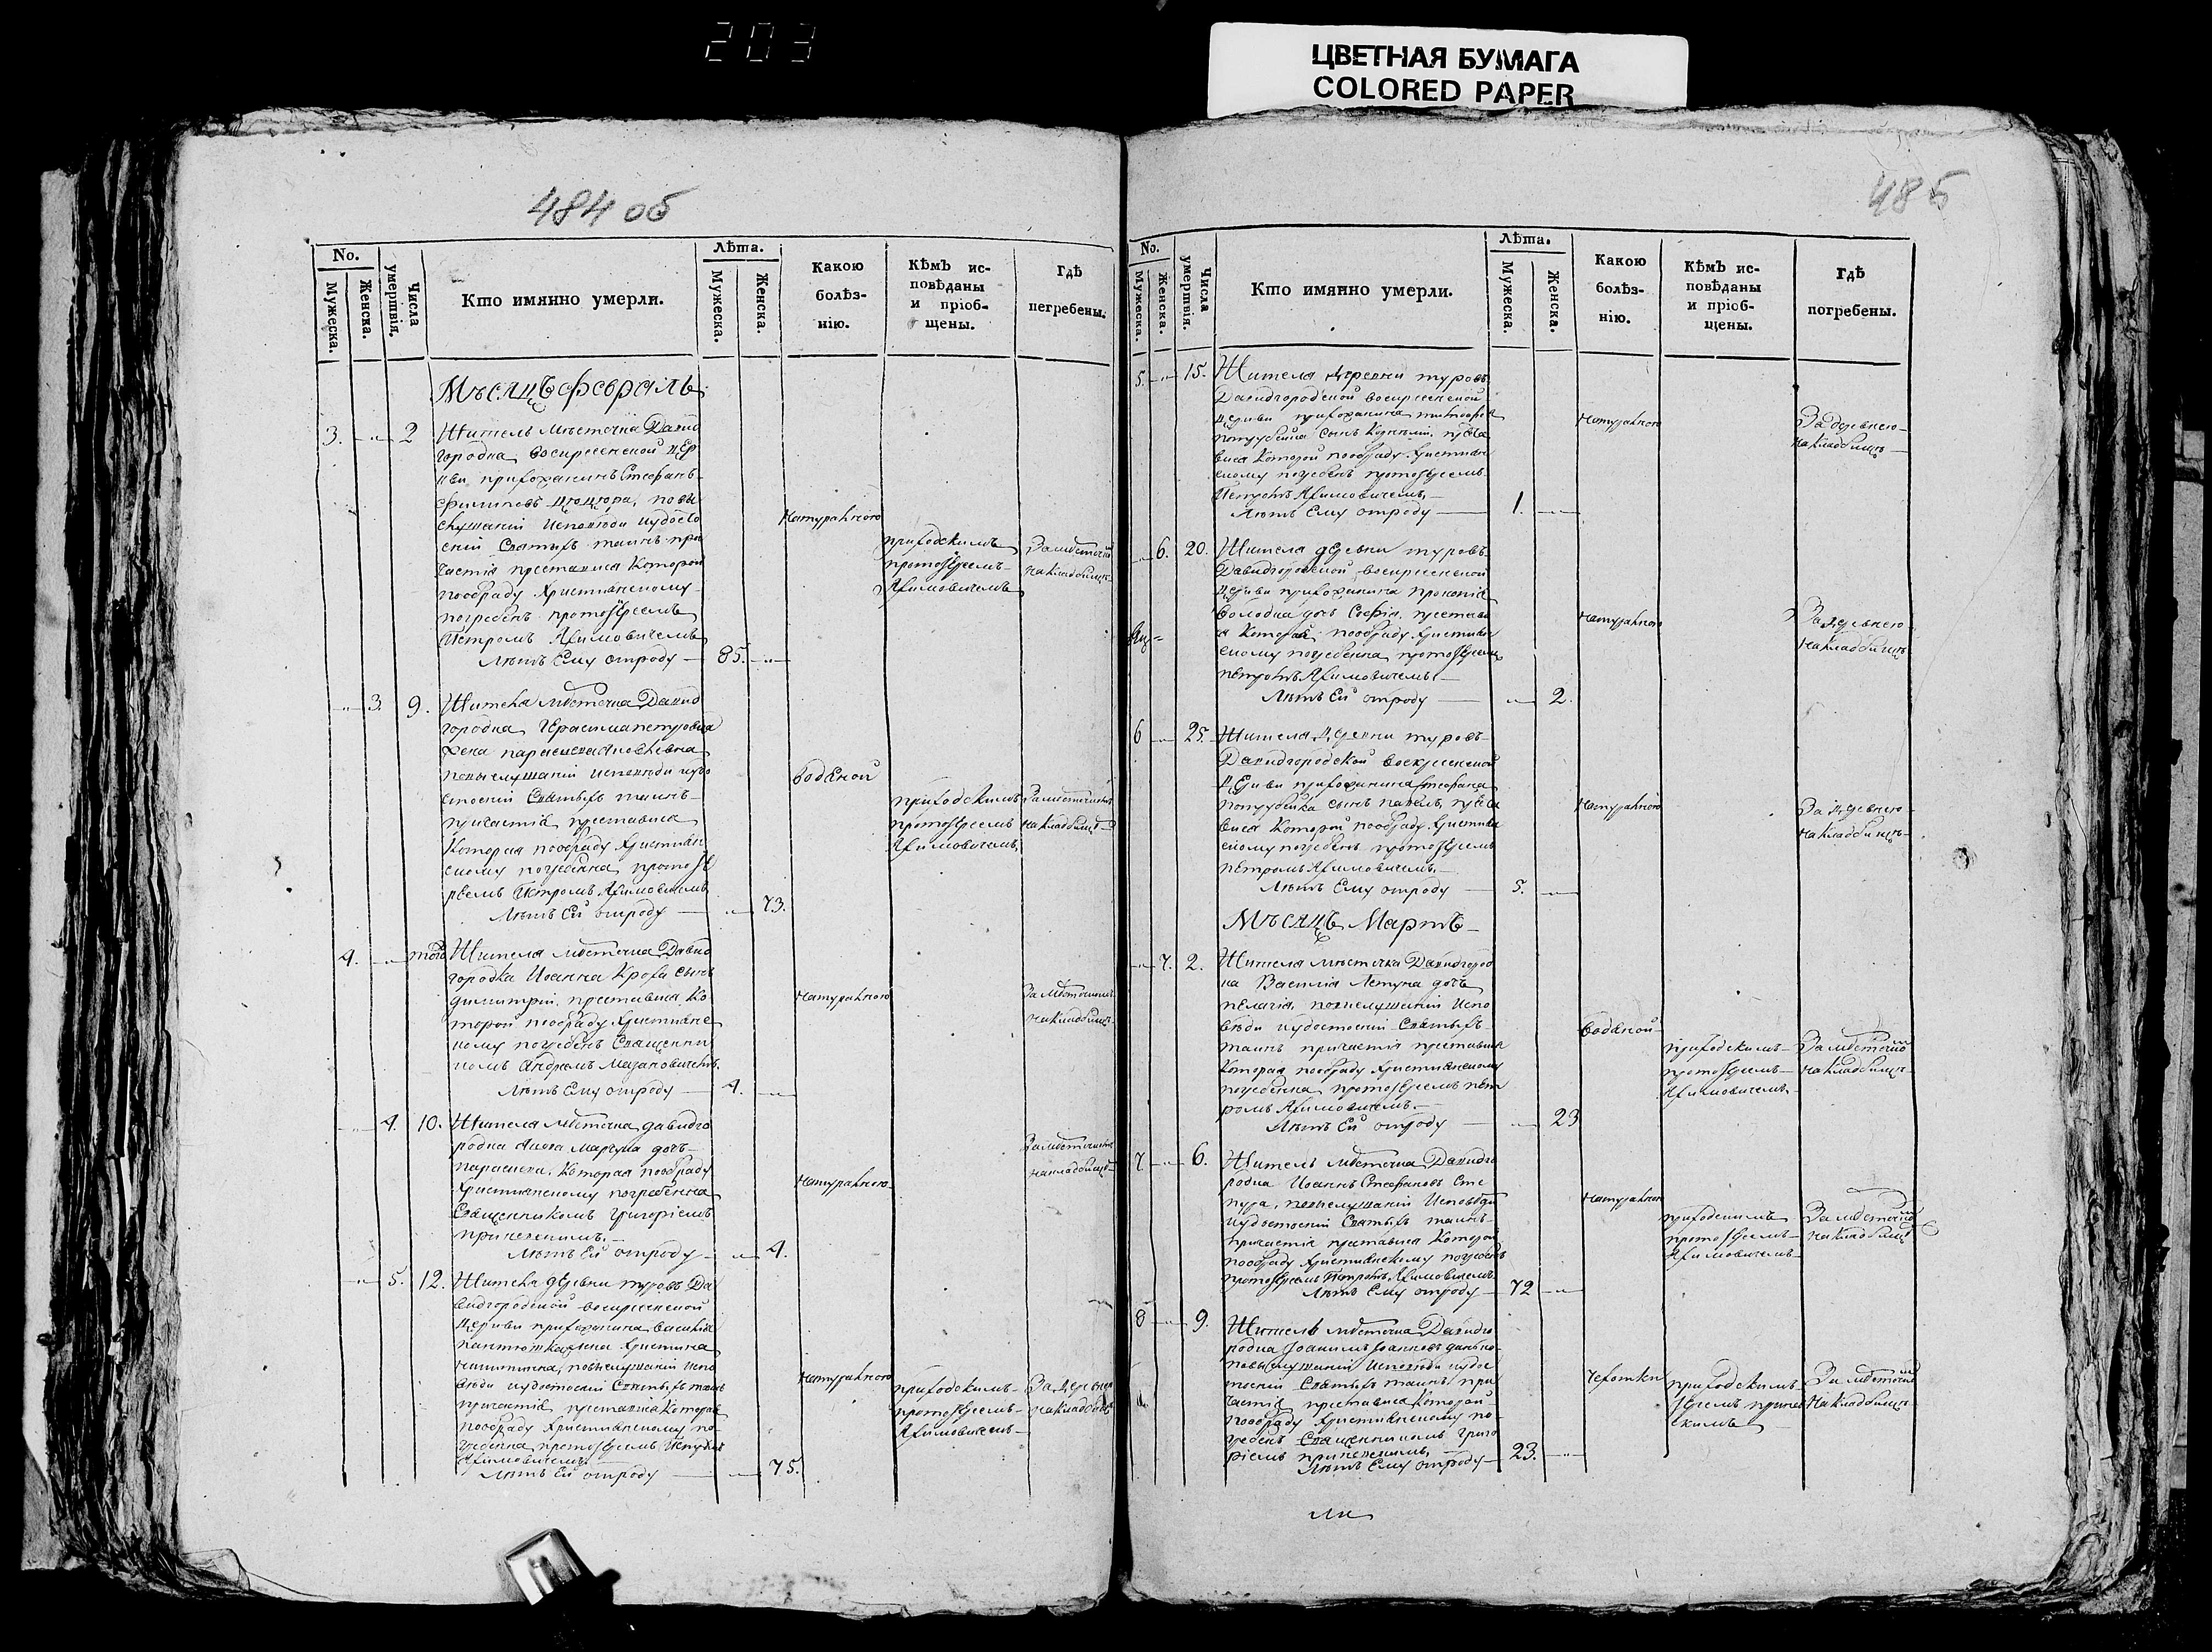 203
ЦВЕТНАЯ БУМАГА
COLORED PAPER
484 об
No.
Мужеска.
Женска.
Числа умертвія.
Кто имянно умерли.
Лѣта.
Мужеска.
Женска.
Какою
болѣз-
нію.
Кѣмъ ис-
повѣданы
и пріоб-
щены.
Гдѣ
пегребены.
Мѣсяцъ февраль
3. 2 Житель мѣстечка Давид
городка воскресенской цер
кви прихожанинъ Стефанъ
филиповъ по вы
слушаніи исповѣди иудосто
еніи Святыхъ таинъ при
частія преставися которой
пообряду христианскому
погребенъ протоіереемъ
Петромъ Якимовичемъ
Лѣтъ Ему отроду — 85.
натуральною
приходскимъ
протоіереемъ
Якимовичемъ
За местечкомъ
на кладбищѣ
3. 9. Жителя местечка Давид
городка Герасима петровича
жена параскева
повыслушаніи исповѣди иудо
стоеніи Святыхъ таинъ
причастія преставися
которая пообряду христиан
скому погребенна протоіе
реемъ Петромъ Якимовичемъ
Лѣтъ Ей отроду — 73.
водяной
приходскимъ
протоіереемъ
Якимовичемъ
За местечкомъ
на кладбищѣ
4. того Жителя местечка Давид
городка Иоанна Кроха сынъ
димитрий, преставися ко
торой пообряду христианс
кому погребенъ Священни
комъ Андреемъ
Лѣтъ Ему отроду — 4.
натуральною
За местечкомъ
на кладбищѣ
4. 10. Жителя местечка давидго
родка дочь
параскева, которая пообряду
христианскому погребенна
Священникомъ григоріемъ
Лѣтъ Ей отроду — 4.
натуральною
За местечкомъ
на кладбищѣ
5. 12. Жителя деревни туровъ Да
видгородской воскресенской
церкви прихожанина василия
жена христина
повыслушаніи испо
вѣди иудостоеніи Святыхъ таинъ
причастія преставися которая
пообряду христианскому по
гребенна протоіереемъ Петромъ
Якимовичемъ
Лѣтъ Ей отроду — 75.
натуральною
приходскимъ
протоіереемъ
Якимовичемъ
За деревнею
на кладбищѣ
485
No.
Мужеска.
Женска.
Числа умертвія.
Кто имянно умерли.
Лѣта.
Мужеска.
Женска.
Какою
болѣз-
нію.
Кѣмъ ис-
повѣданы
и пріоб-
щены.
Гдѣ
погребены.
5. 15. Жителя деревни туровъ
Давидгородской воскресенской
церкви прихожанина тимофея
потрубейка сынъ Корнилий, преста
вися которой пообряду христиан
скому погребенъ протоіереемъ
Петромъ Якимовичемъ
Лѣтъ Ему отроду — 1.
натуральною
За деревнею
на кладбищѣ
6. 20. Жителя деревни туровъ
Давидгородской воскресенской
церкви прихожанина прокопія
дочь Софія, престави
я которая пообряду христиан
скому погребенна протоіереемъ
петромъ Якимовичемъ
Лѣтъ Ей отроду — 2.
натуральною
За деревнею
на кладбищѣ
6 25. Жителя деревни туровъ
Давидгородской воскресенской
церкви прихожанина стефана
потрубейка сынъ павелъ, преста
вися которой пообряду христиан
скому погребенъ протоіереемъ
петромъ Якимовичемъ
Лѣтъ Ему отроду — 5.
натуральною
За деревнею
на кладбищѣ
Мѣсяцъ Мартъ
7. 2. Жителя местечка Давидгород
ка Василія Летуна дочь
пелагія, повыслушаніи испо
вѣди иудостоеніи Святыхъ
таинъ причастія преставися
которая пообряду христианскому
погребенна протоіереемъ пет
ромъ Якимовичемъ
Лѣтъ Ей отроду — 23
водяной
приходскимъ
протоіереемъ
Якимовичемъ
За местечкомъ
на кладбищѣ
7 6. Житель местечка Давидго
родка Иоаннъ Стефановъ Сте
пура, повыслушаніи Исповѣди
иудостоеніи Святыхъ таинъ
причастія преставися которой
пообряду христианскому погребенъ
протоіереемъ Петромъ Якимовичемъ
Лѣтъ Ему отроду — 72
натуральною
приходскимъ
протоіереемъ
Якимовичемъ
За местечкомъ
на кладбищѣ
8 9. Житель местечка Давидго
родка Иоакимъ Иоанновъ
повыслушаніи исповѣди иудос
тоеніи Святыхъ таинъ при
частія преставися которой
пообряду христианскому по
гребенъ Священникомъ григо
ріемъ
Лѣтъ Ему отроду — 23.
чехотки
приходскимъ
іереемъ
За местечкомъ
на кладбищѣ